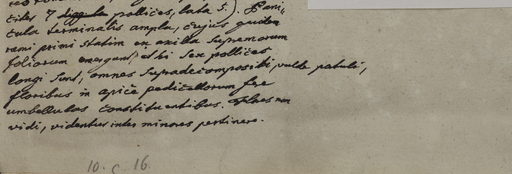 ciles 7 pollices, lata 5.). Pani,
cula terminalis ampla, cujus quidem
rami primi statim ex axilla supremorum
foliorum emergunt, et hi sex pollices
longi sunt, omnes supradecompositi, valde patuli,
floribus in apice pedicellorum fere
umbellulas constituentibus. Flores non
vidi, videntur inter minores pertinere.
10. c. 16.